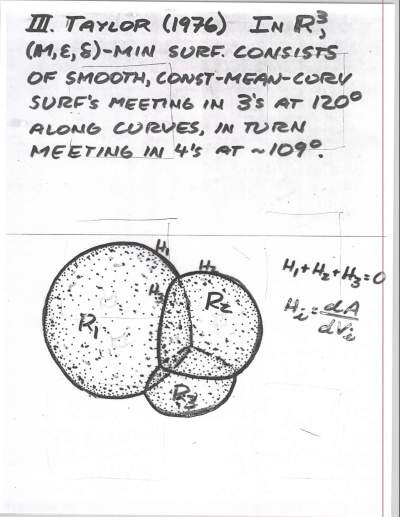 III. TAYLOR (1976) IN R³,
(M,ε,δ)-MIN SURF. CONSISTS
OF SMOOTH, CONST-MEAN-CURV
SURF'S MEETING IN 3'S AT 120°
ALONG CURVES, IN TURN
MEETING IN 4'S AT ~109°.
H₁
H₂
H₃
R₁
R₂
R₃
H₁+H₂+H₃=0
Hᵢ=dA/dVᵢ